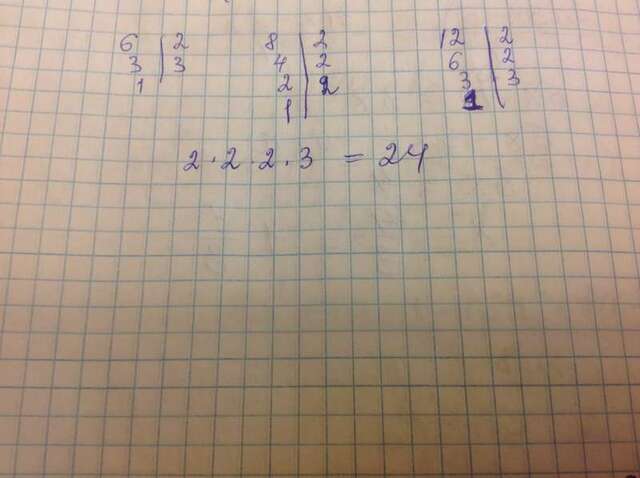 6 | 2 8 | 2 12 | 2
3 | 3 4 | 2 6 | 2
1 | 2 | 2 3 | 3
1 | 1
2 · 2 · 2 · 3 = 24